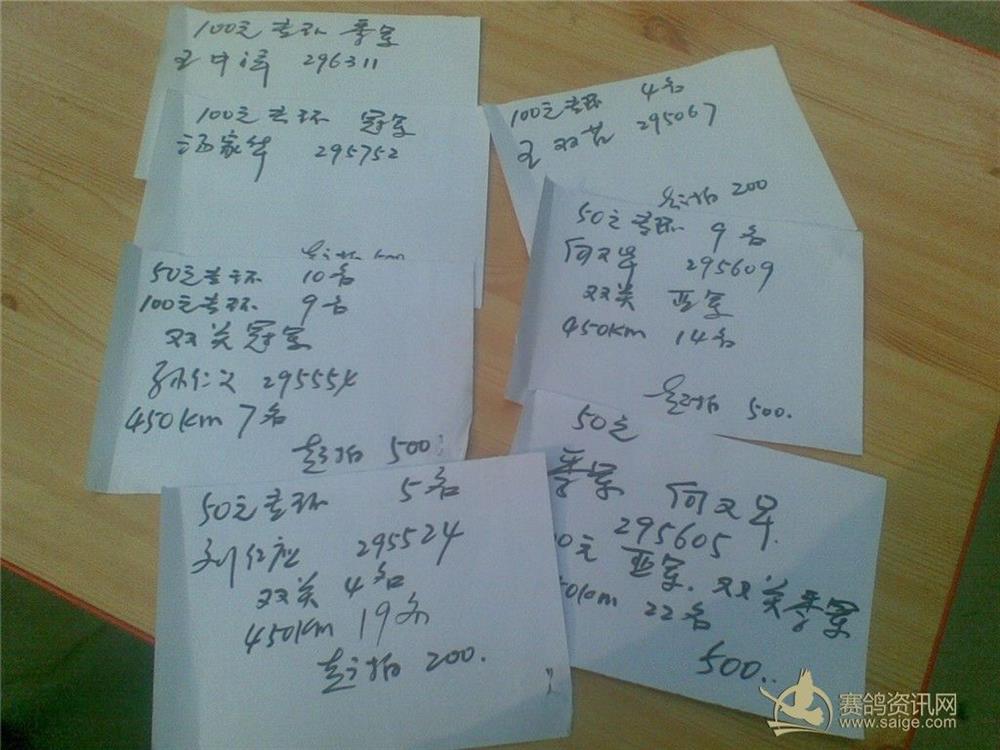 100元专环 季军
王中泽 296311
100元专环 冠军
汤家华 295752
50元专环 10名
100元专环 9名
双关冠军
孙仁义 295554
450km 7名
起拍 500
50元专环 5名
刘仁应 295524
双关 4名
450km 19名
起拍 200.
100元专环 4名
王双 295067
200
50元专环 9名
何又军 295609
双关 亚军
450km 14名
500.
50元
季军 何又军
295605
0元 亚军. 双关季军
50km 22名
500..
赛鸽资讯网
www.saige.com